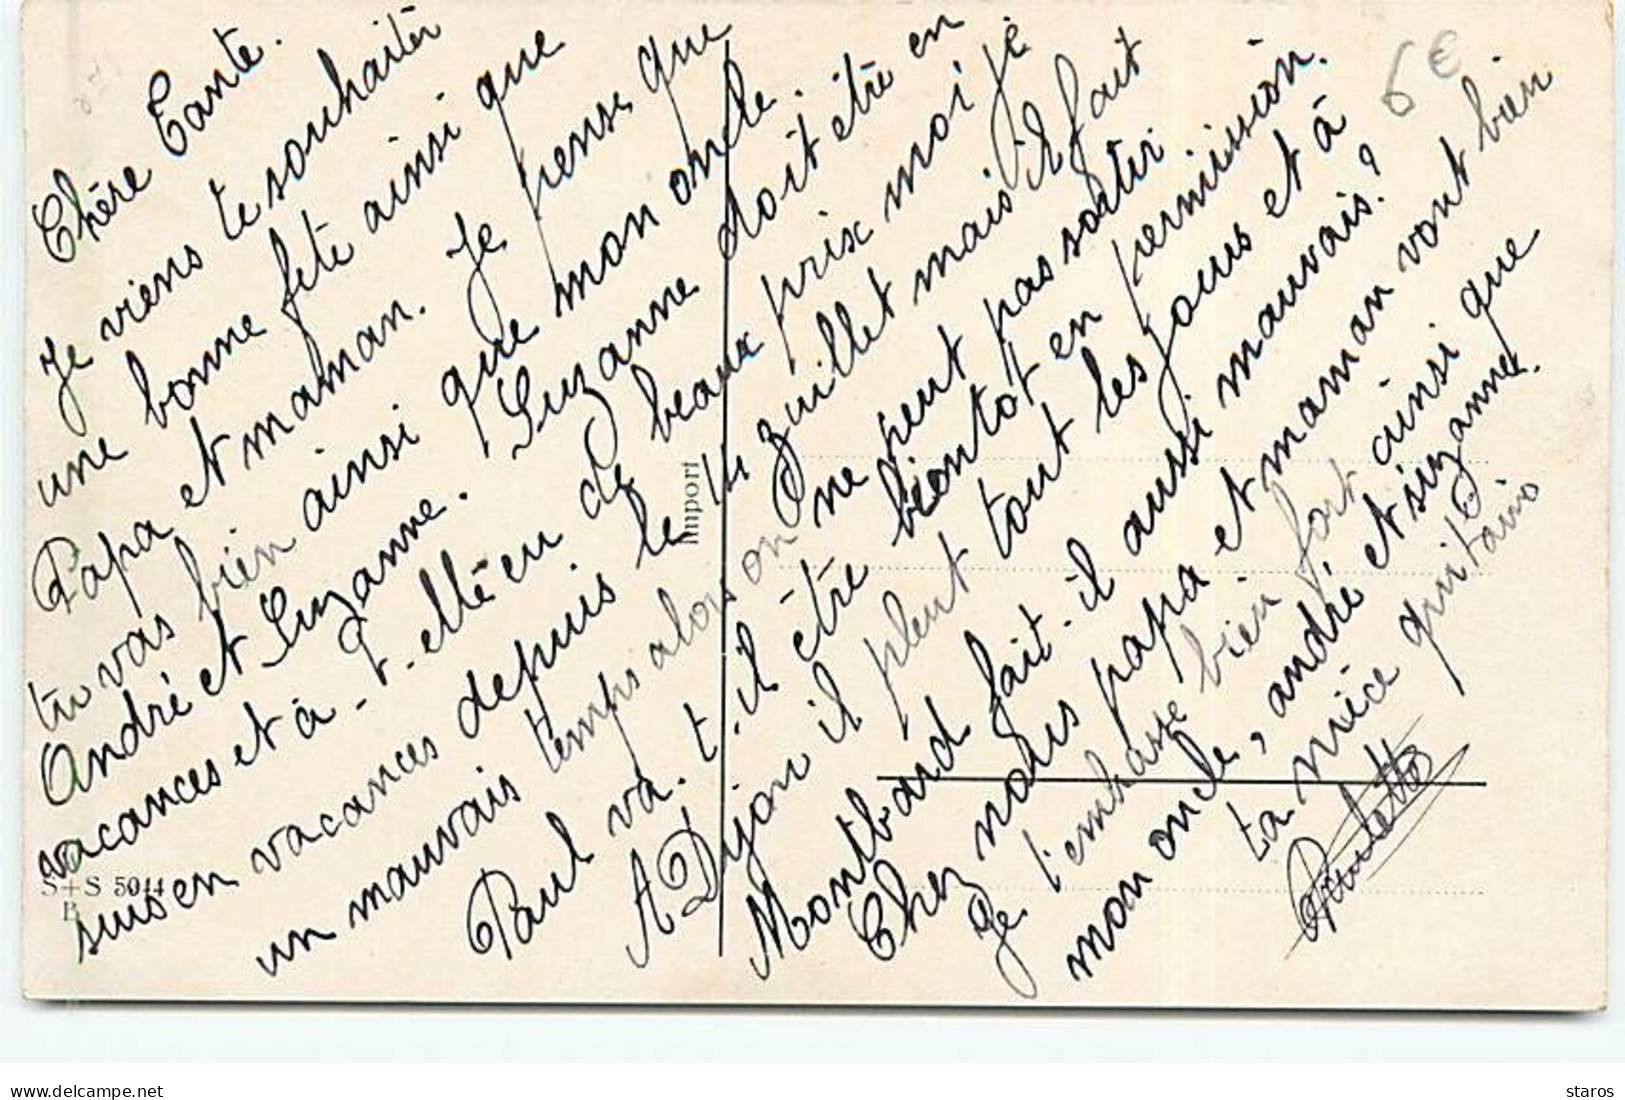 Chère Tante.
Je viens te souhaiter
une bonne fête ainsi que
Papa et maman. Je pense que
tu vas bien ainsi que mon oncle.
André et Suzanne. Suzanne doit être en
vacances et à-t-elle eu de beaux prix moi je
suis en vacances depuis le 14 juillet mais il fait
un mauvais temps alors on ne peut pas sortir
Paul va-t-il être bientot en permission.
A Dijon il pleut tout les jours et à
Montbard fait-il aussi mauvais?
Chez nous papa et maman vont bien
Je t'embrasse bien fort ainsi que
mon oncle, andré et suzanne.
ta nièce
Paulette
Import
S+S 5044
B
6€
delcampe.net
staros